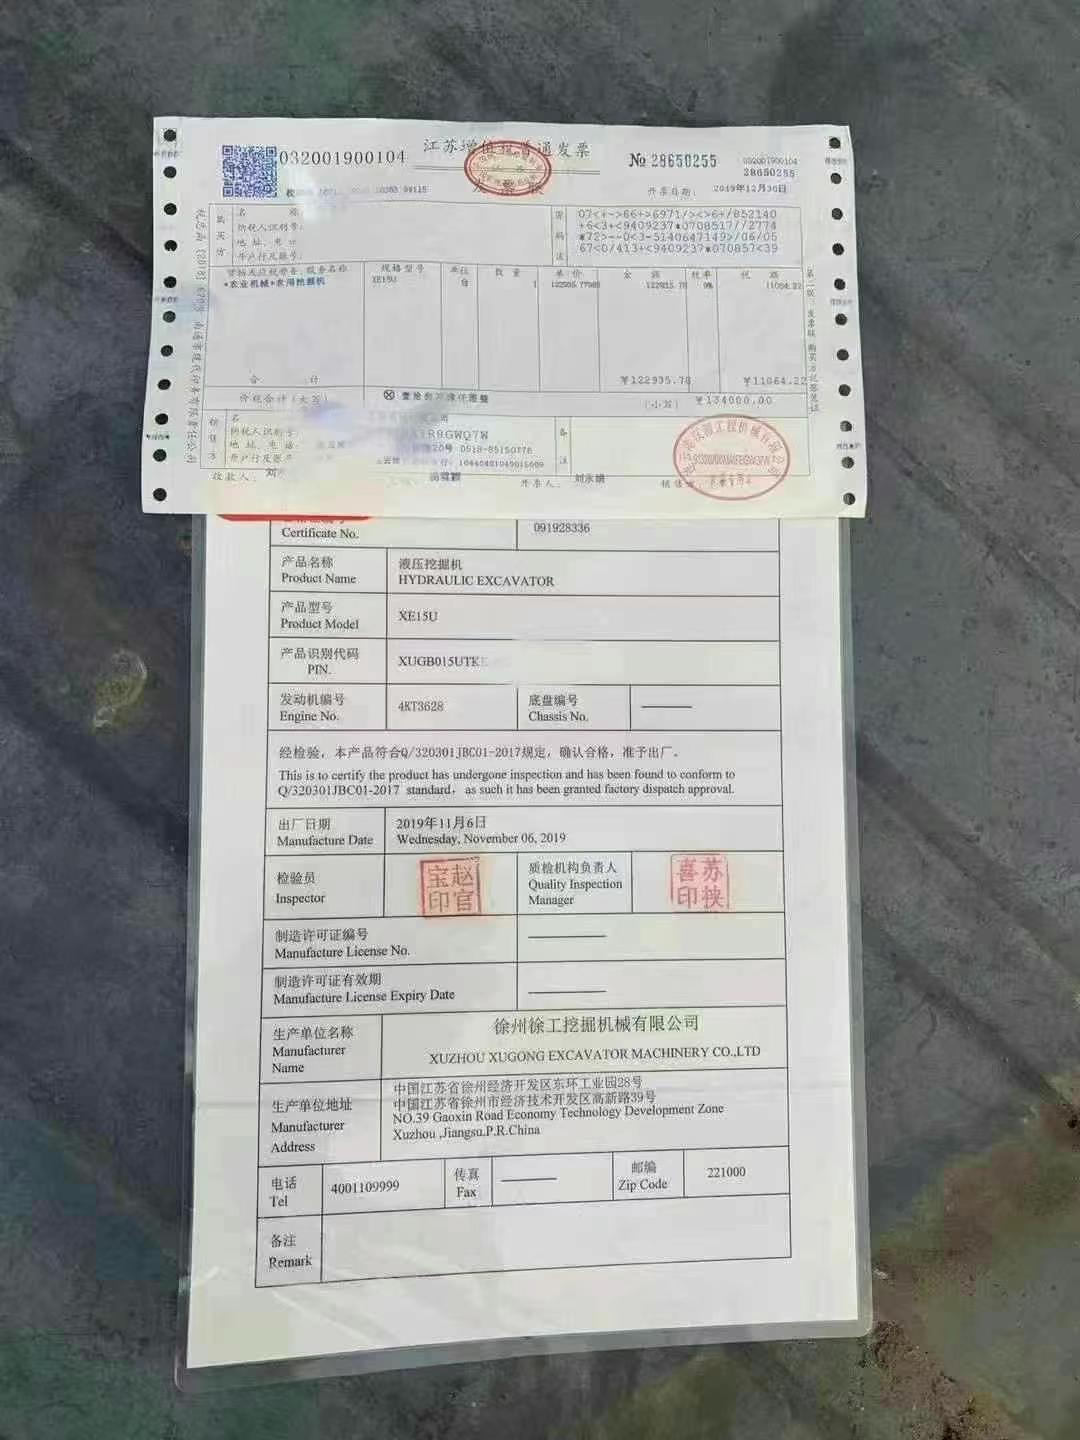 032001900104
江苏增值税普通发票
№ 28650255
032001900104
28650255
开票日期：
2019年12月30日
购买方
名 称
纳税人识别号：
地 址、电 话
开户行及账号：
密码
07<+->66+>6971/><>6+/852140
+6<3+<9409237*0708517//2774
*72>--0<3-5140647149>/06/05
67<0/413+<9409237*070857<39
货物或应税劳务、服务名称 规格型号 单位 数 量 单 价 金 额 税率 税 额
*农业机械*农用挖掘机 XE15U 台 1 122935.78 9% 11064.22
合 计 ¥122935.78 ¥11064.22
价税合计（大写） ⊗ 壹拾叁万肆仟圆整 （小写） ¥134000.00
销售方
名
纳税人识别号：
R8GWQ7W
地 址、电 话
20号 0518-85150776
开户行及账号：
备注
收款人：
刘
开票人：
刘永娟
第二联：发票联 购买方记账凭证
Certificate No.
091928336
产品名称
Product Name
液压挖掘机
HYDRAULIC EXCAVATOR
产品型号
Product Model
XE15U
产品识别代码
PIN.
XUGB015UTK
发动机编号
Engine No.
4KT3628
底盘编号
Chassis No.
经检验，本产品符合Q/320301JBC01-2017规定，确认合格，准予出厂。
This is to certify the product has undergone inspection and has been found to conform to
Q/320301JBC01-2017 standard，as such it has been granted factory dispatch approval.
出厂日期
Manufacture Date
2019年11月6日
Wednesday, November 06, 2019
检验员
Inspector
赵官宝印
质检机构负责人
Quality Inspection
Manager
苏挟喜印
制造许可证编号
Manufacture License No.
制造许可证有效期
Manufacture License Expiry Date
生产单位名称
Manufacturer
Name
徐州徐工挖掘机械有限公司
XUZHOU XUGONG EXCAVATOR MACHINERY CO.,LTD
生产单位地址
Manufacturer
Address
中国江苏省徐州经济开发区东环工业园28号
中国江苏省徐州市经济技术开发区高新路39号
NO.39 Gaoxin Road Economy Technology Development Zone
Xuzhou ,Jiangsu.P.R.China
电话
Tel
4001109999
传真
Fax
邮编
Zip Code
221000
备注
Remark